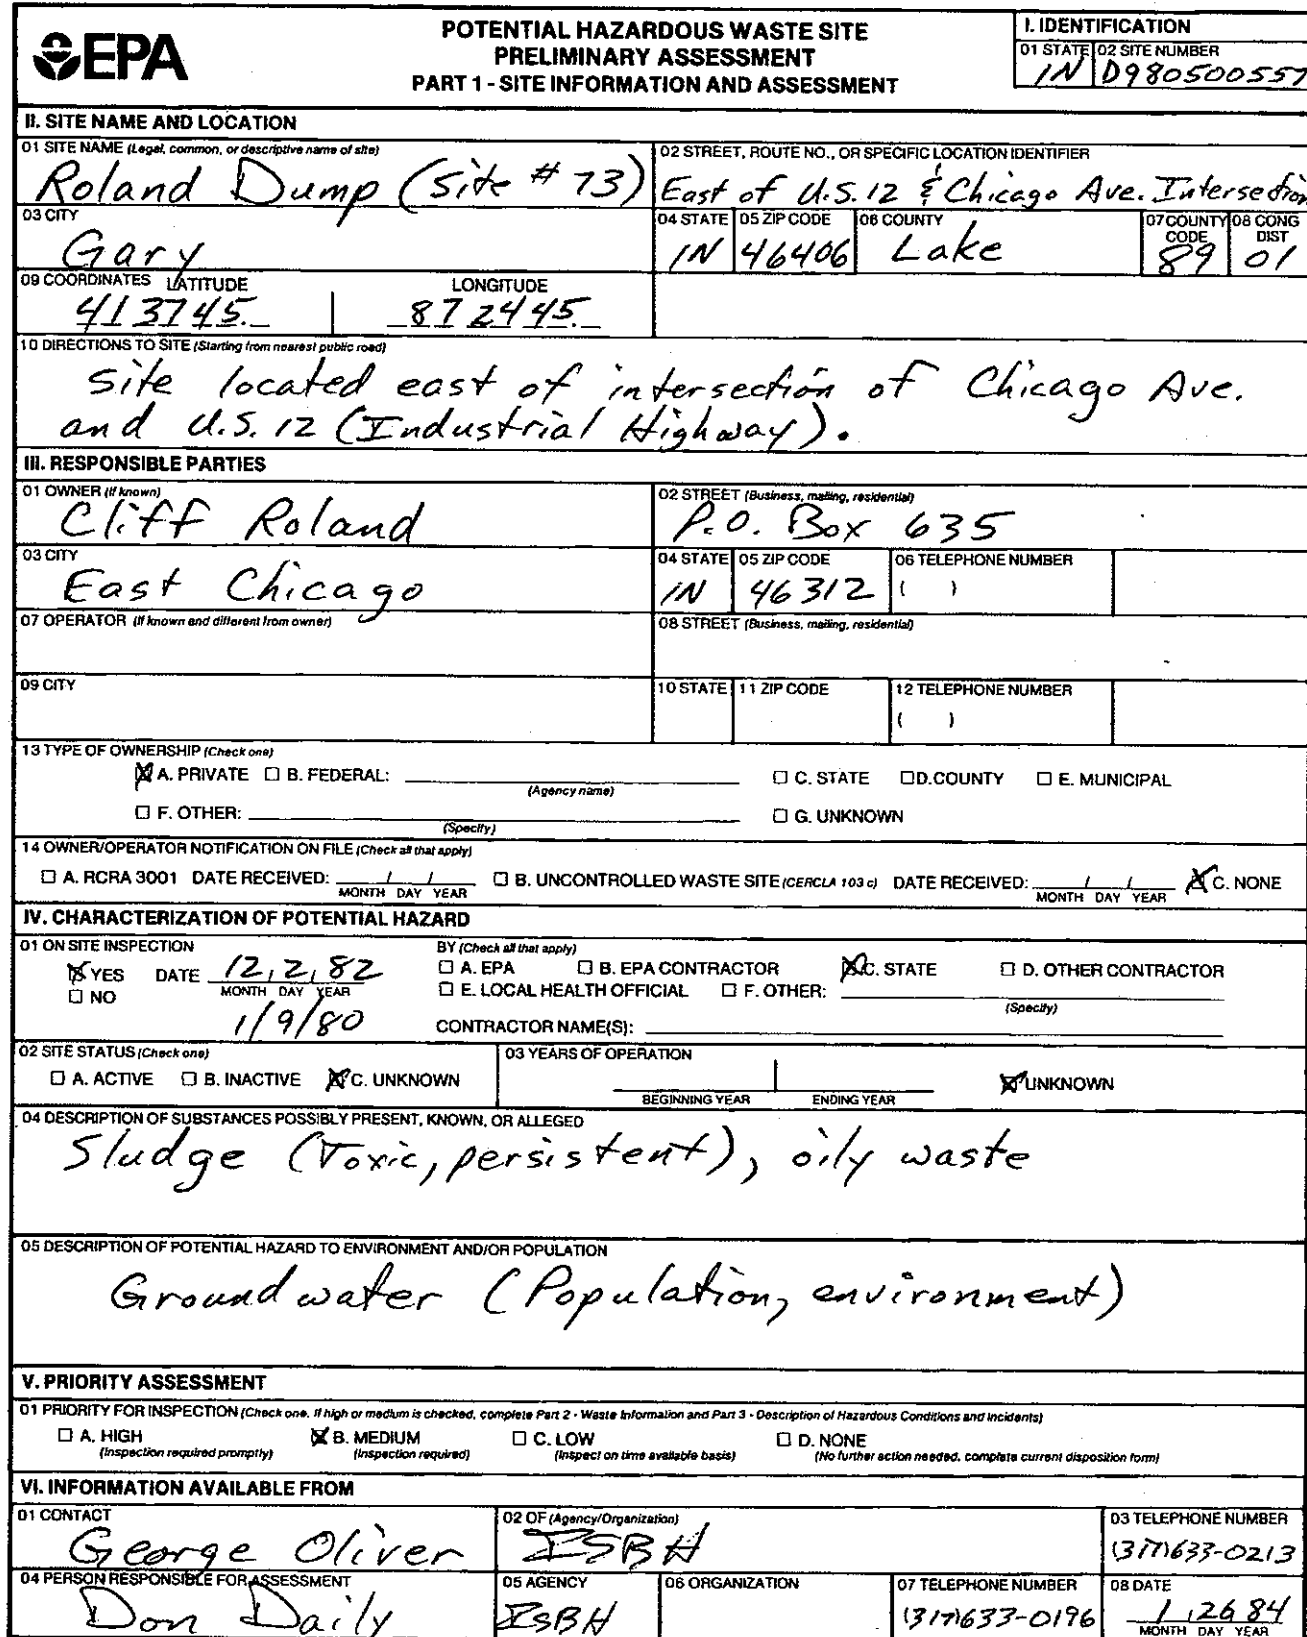 EPA
POTENTIAL HAZARDOUS WASTE SITE
PRELIMINARY ASSESSMENT
PART 1 - SITE INFORMATION AND ASSESSMENT
I. IDENTIFICATION
01 STATE 02 SITE NUMBER
IN D980500557
II. SITE NAME AND LOCATION
01 SITE NAME (Legal, common, or descriptive name of site)
Roland Dump (Site # 73)
02 STREET, ROUTE NO., OR SPECIFIC LOCATION IDENTIFIER
East of U.S. 12 & Chicago Ave. Intersection
03 CITY
Gary
04 STATE 05 ZIP CODE 06 COUNTY 07 COUNTY CODE 08 CONG DIST
IN 46406 Lake 89 01
09 COORDINATES LATITUDE LONGITUDE
413745. 872445.
10 DIRECTIONS TO SITE (Starting from nearest public road)
Site located east of intersection of Chicago Ave.
and U.S. 12 (Industrial Highway).
III. RESPONSIBLE PARTIES
01 OWNER (if known)
Cliff Roland
02 STREET (Business, mailing, residential)
P.O. Box 635
03 CITY
East Chicago
04 STATE 05 ZIP CODE 06 TELEPHONE NUMBER
IN 46312 ( )
07 OPERATOR (If known and different from owner)
08 STREET (Business, mailing, residential)
09 CITY
10 STATE 11 ZIP CODE 12 TELEPHONE NUMBER
( )
13 TYPE OF OWNERSHIP (Check one)
☒ A. PRIVATE ☐ B. FEDERAL: ☐ C. STATE ☐ D. COUNTY ☐ E. MUNICIPAL
(Agency name)
☐ F. OTHER: ☐ G. UNKNOWN
(Specify)
14 OWNER/OPERATOR NOTIFICATION ON FILE (Check all that apply)
☐ A. RCRA 3001 DATE RECEIVED: / / ☐ B. UNCONTROLLED WASTE SITE (CERCLA 103 c) DATE RECEIVED: / / ☒ C. NONE
MONTH DAY YEAR MONTH DAY YEAR
IV. CHARACTERIZATION OF POTENTIAL HAZARD
01 ON SITE INSPECTION
☒ YES DATE 12, 2, 82
MONTH DAY YEAR
☐ NO
1/9/80
BY (Check all that apply)
☐ A. EPA ☐ B. EPA CONTRACTOR ☒ C. STATE ☐ D. OTHER CONTRACTOR
☐ E. LOCAL HEALTH OFFICIAL ☐ F. OTHER:
(Specify)
CONTRACTOR NAME(S):
02 SITE STATUS (Check one)
☐ A. ACTIVE ☐ B. INACTIVE ☒ C. UNKNOWN
03 YEARS OF OPERATION
☒ UNKNOWN
BEGINNING YEAR ENDING YEAR
04 DESCRIPTION OF SUBSTANCES POSSIBLY PRESENT, KNOWN, OR ALLEGED
Sludge (Toxic, persistent), oily waste
05 DESCRIPTION OF POTENTIAL HAZARD TO ENVIRONMENT AND/OR POPULATION
Groundwater (Population, environment)
V. PRIORITY ASSESSMENT
01 PRIORITY FOR INSPECTION (Check one. If high or medium is checked, complete Part 2 - Waste Information and Part 3 - Description of Hazardous Conditions and Incidents)
☐ A. HIGH ☒ B. MEDIUM ☐ C. LOW ☐ D. NONE
(Inspection required promptly) (Inspection required) (Inspect on time available basis) (No further action needed, complete current disposition form)
VI. INFORMATION AVAILABLE FROM
01 CONTACT
George Oliver
02 OF (Agency/Organization)
ISBH
03 TELEPHONE NUMBER
(317) 633-0213
04 PERSON RESPONSIBLE FOR ASSESSMENT
Don Daily
05 AGENCY
ISBH
06 ORGANIZATION
07 TELEPHONE NUMBER
(317) 633-0196
08 DATE
1, 26 84
MONTH DAY YEAR